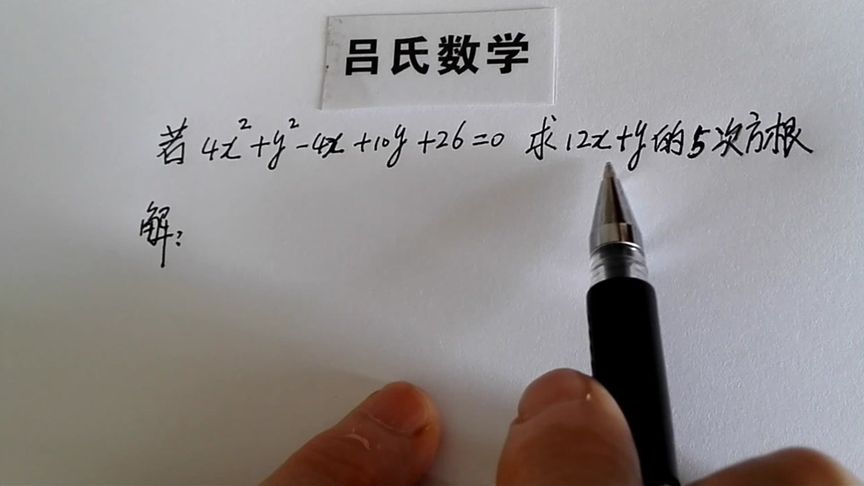 吕氏数学
若4x²+y²-4x+10y+26=0 求12x+y的5次方根
解: